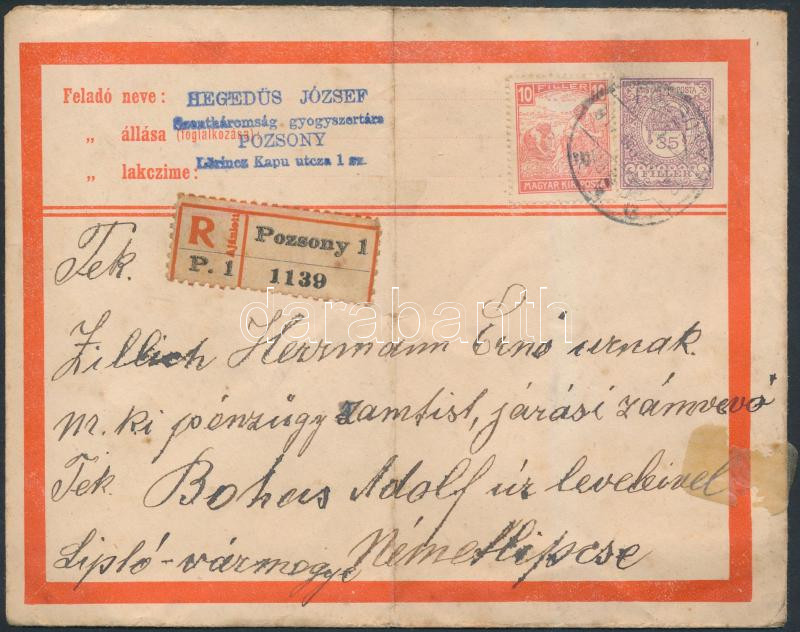 Feladó neve: HEGEDŰS JÓZSEF
„ állása (foglalkozása): Szentháromság gyogyszertára
POZSONY
„ lakczíme: Lőrincz Kapu utcza 1 sz.
10 FILLER 10
MAGYAR KIR. POSTA
MAGYAR KIR. POSTA
35
FILLER
R Ajánlott Pozsony 1
P. 1 1139
Tek.
Zillich Herrmann Ernő urnak.
m. ki pénzügy zamtist, járási zámvevő
Tek Bohus Adolf úr leveleivel
Lipló-vármegye Németlipcse
darabanth